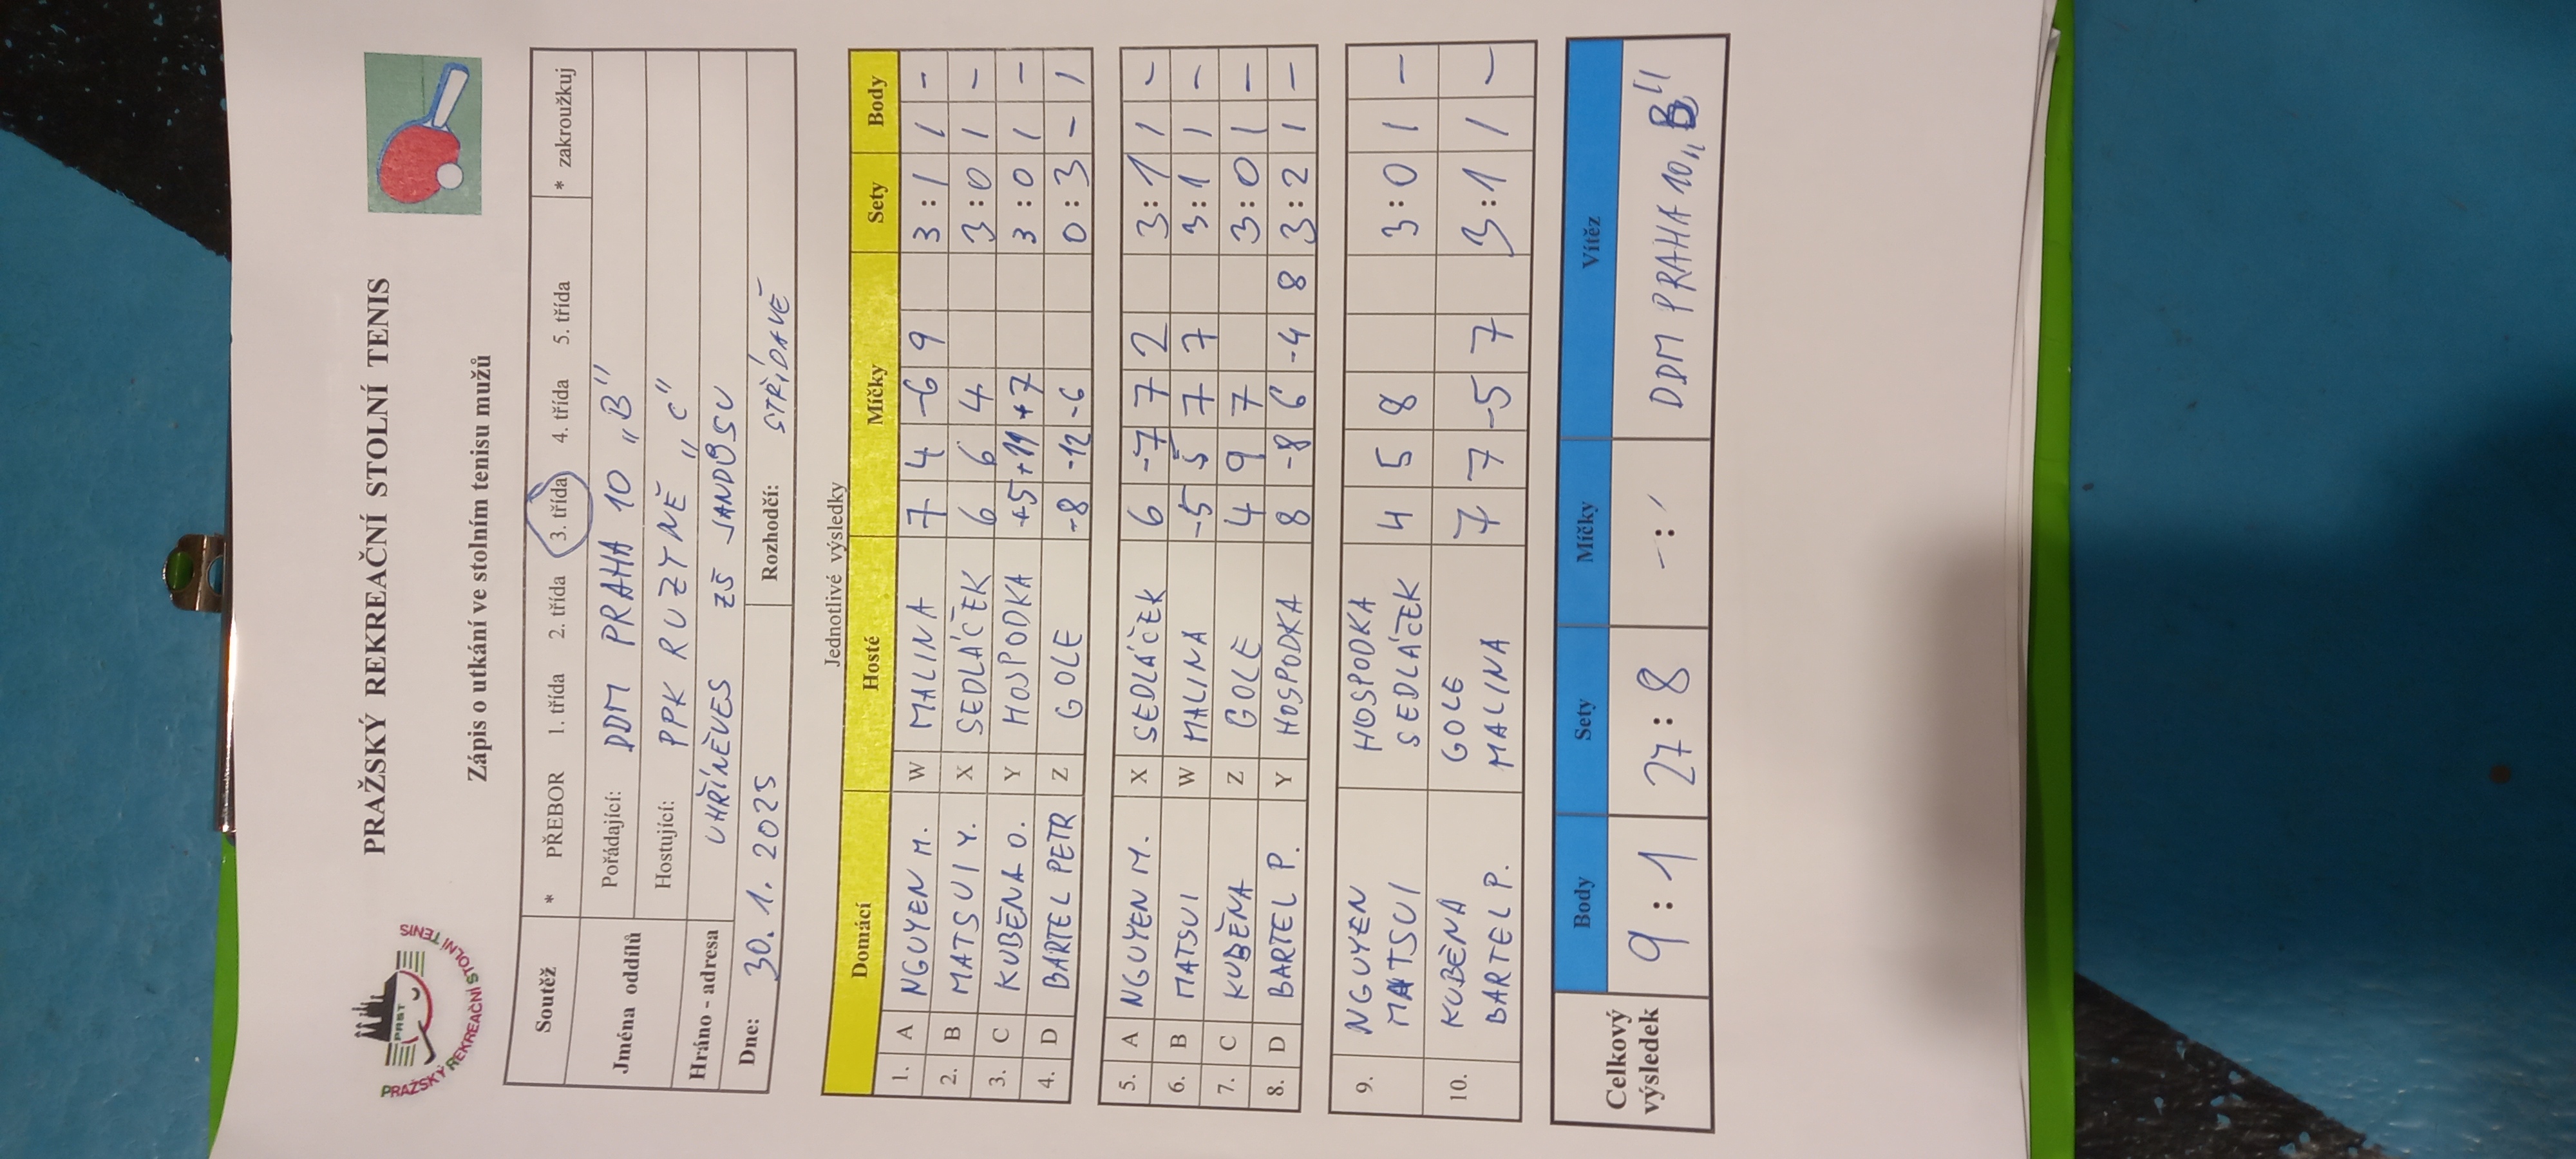 PRAŽSKÝ REKREAČNÍ STOLNÍ TENIS
PRST
PRAŽSKÝ REKREAČNÍ STOLNÍ TENIS
Zápis o utkání ve stolním tenisu mužů
Soutěž * PŘEBOR 1. třída 2. třída 3. třída 4. třída 5. třída * zakroužkuj
Jména oddílů Pořádající: DDM PRAHA 10 „B"
Hostující: PPK RUZYNĚ „C"
Hráno - adresa UHŘÍNĚVES ZŠ JANDOSU
Dne: 30. 1. 2025 Rozhodčí: STŘÍDAVĚ
Jednotlivé výsledky
Domácí Hosté Míčky Sety Body
1. A NGUYEN M. W MALINA 7 4 -6 9 3:1 1 -
2. B MATSUI Y. X SEDLÁČEK 6 6 4 3:0 1 -
3. C KUBĚNA O. Y HOSPODKA +5 +11 +7 3:0 1 -
4. D BARTEL PETR Z GOLE -8 -12 -6 0:3 - 1
5. A NGUYEN M. X SEDLÁČEK 6 -7 7 2 3:1 1 -
6. B MATSUI W MALINA -5 5 7 7 3:1 1 -
7. C KUBĚNA Z GOLE 4 9 7 3:0 1 -
8. D BARTEL P. Y HOSPODKA 8 -8 6 -4 8 3:2 1 -
9. NGUYEN HOSPODKA
MATSUI SEDLÁČEK 4 5 8 3:0 1 -
10. KUBĚNA GOLE
BARTEL P. MALINA 7 7 -5 7 3:1 1 -
Celkový výsledek Body Sety Míčky Vítěz
9:1 27:8 -:- DDM PRAHA 10 „B"